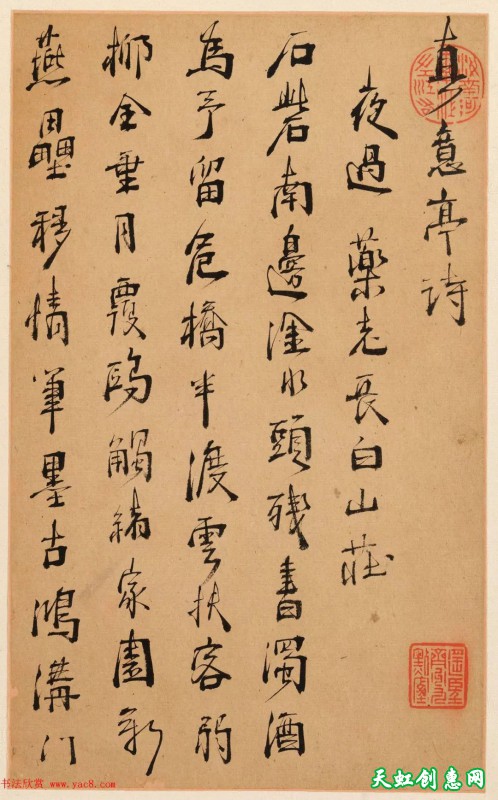 真意亭诗
夜過藥老長白山莊
石砦南邊淦水頭殘書濁酒
為予留危橋半渡雲扶客削
柳全垂月覆鷗觸緒家園新
燕壘移情筆墨古鴻溝门
书法欣赏 www.yac8.com
天虹创意网